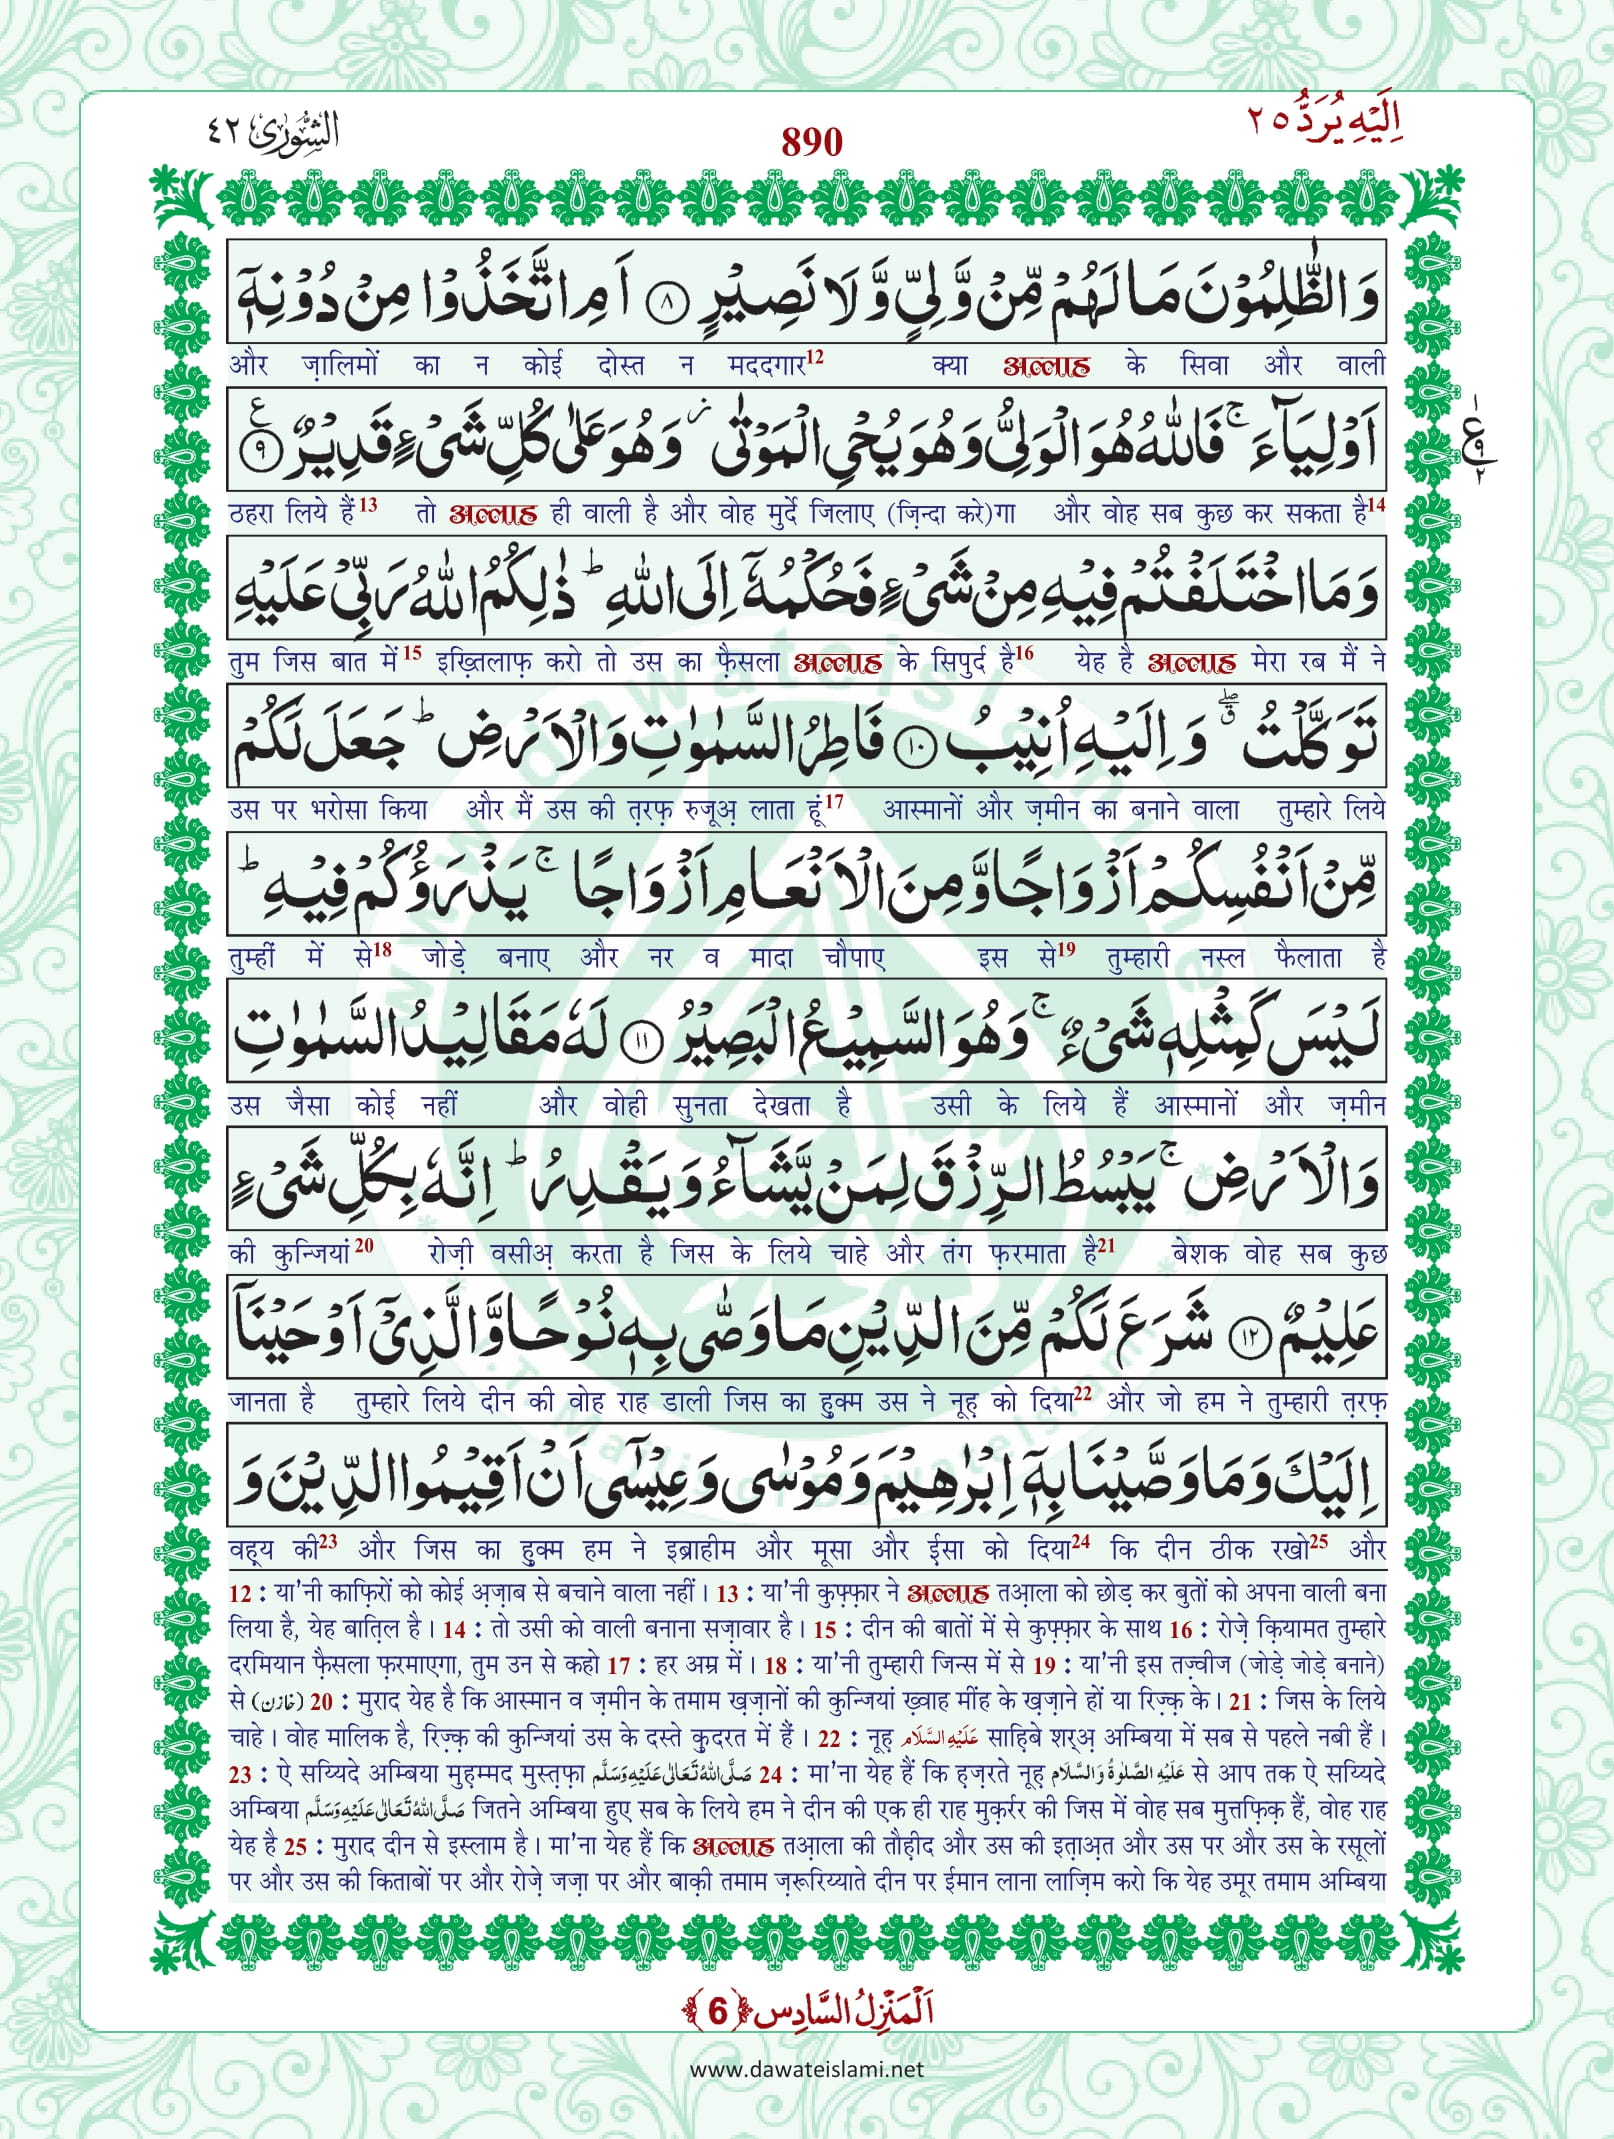 اِلَيْهِ يُرَدُّ ٢٥
890
الشُّوْرٰى ٤٢
وَ الظّٰلِمُوْنَ مَا لَهُمْ مِّنْ وَّلِیٍّ وَّ لَا نَصِیْرٍ ﴿٨﴾ اَمِ اتَّخَذُوْا مِنْ دُوْنِهٖۤ
और ज़ालिमों का न कोई दोस्त न मददगार12 क्या अल्लाह के सिवा और वाली
اَوْلِیَآءَ ۚ فَاللّٰهُ هُوَ الْوَلِیُّ وَ هُوَ یُحْیِ الْمَوْتٰى ٘ وَ هُوَ عَلٰى كُلِّ شَیْءٍ قَدِیْرٌ ﴿٩﴾ ع
ठहरा लिये हैं13 तो अल्लाह ही वाली है और वोह मुर्दे जिलाए (ज़िन्दा करे)गा और वोह सब कुछ कर सकता है14
وَ مَا اخْتَلَفْتُمْ فِیْهِ مِنْ شَیْءٍ فَحُكْمُهٗۤ اِلَى اللّٰهِ ؕ ذٰلِكُمُ اللّٰهُ رَبِّیْ عَلَیْهِ
तुम जिस बात में15 इख़्तिलाफ़ करो तो उस का फ़ैसला अल्लाह के सिपुर्द है16 येह है अल्लाह मेरा रब मैं ने
تَوَكَّلْتُ ۖۗ وَ اِلَیْهِ اُنِیْبُ ﴿١٠﴾ فَاطِرُ السَّمٰوٰتِ وَ الْاَرْضِ ؕ جَعَلَ لَكُمْ
उस पर भरोसा किया और मैं उस की त़रफ़ रुजूअ़ लाता हूं17 आस्मानों और ज़मीन का बनाने वाला तुम्हारे लिये
مِّنْ اَنْفُسِكُمْ اَزْوَاجًا وَّ مِنَ الْاَنْعَامِ اَزْوَاجًا ۚ یَذْرَؤُكُمْ فِیْهِ ؕ
तुम्हीं में से18 जोड़े बनाए और नर व मादा चौपाए इस से19 तुम्हारी नस्ल फैलाता है
لَیْسَ كَمِثْلِهٖ شَیْءٌ ۚ وَ هُوَ السَّمِیْعُ الْبَصِیْرُ ﴿١١﴾ لَهٗ مَقَالِیْدُ السَّمٰوٰتِ
उस जैसा कोई नहीं और वोही सुनता देखता है उसी के लिये हैं आस्मानों और ज़मीन
وَ الْاَرْضِ ۚ یَبْسُطُ الرِّزْقَ لِمَنْ یَّشَآءُ وَ یَقْدِرُ ؕ اِنَّهٗ بِكُلِّ شَیْءٍ
की कुन्जियां20 रोज़ी वसीअ़ करता है जिस के लिये चाहे और तंग फ़रमाता है21 बेशक वोह सब कुछ
عَلِیْمٌ ﴿١٢﴾ شَرَعَ لَكُمْ مِّنَ الدِّیْنِ مَا وَصّٰى بِهٖ نُوْحًا وَّ الَّذِیْۤ اَوْحَیْنَاۤ
जानता है तुम्हारे लिये दीन की वोह राह डाली जिस का हुक्म उस ने नूह़ को दिया22 और जो हम ने तुम्हारी त़रफ़
اِلَیْكَ وَ مَا وَصَّیْنَا بِهٖۤ اِبْرٰهِیْمَ وَ مُوْسٰى وَ عِیْسٰۤى اَنْ اَقِیْمُوا الدِّیْنَ وَ
वह़्य की23 और जिस का हुक्म हम ने इब्राहीम और मूसा और ईसा को दिया24 कि दीन ठीक रखो25 और
12 : या'नी काफ़िरों को कोई अ़ज़ाब से बचाने वाला नहीं। 13 : या'नी कुफ़्फ़ार ने अल्लाह तआ़ला को छोड़ कर बुतों को अपना वाली बना
लिया है, येह बात़िल है। 14 : तो उसी को वाली बनाना सज़ावार है। 15 : दीन की बातों में से कुफ़्फ़ार के साथ 16 : रोज़े क़ियामत तुम्हारे
दरमियान फ़ैसला फ़रमाएगा, तुम उन से कहो 17 : हर अम्र में। 18 : या'नी तुम्हारी जिन्स में से 19 : या'नी इस तज़्वीज (जोड़े जोड़े बनाने)
से (خازن) 20 : मुराद येह है कि आस्मान व ज़मीन के तमाम ख़ज़ानों की कुन्जियां ख़्वाह मींह के ख़ज़ाने हों या रिज़्क़ के। 21 : जिस के लिये
चाहे। वोह मालिक है, रिज़्क़ की कुन्जियां उस के दस्ते क़ुदरत में हैं। 22 : नूह़ عَلَيْهِ السَّلَام साह़िबे शर्अ़ अम्बिया में सब से पहले नबी हैं।
23 : ऐ सय्यिदे अम्बिया मुह़म्मद मुस्त़फ़ा صَلَّى اللّٰهُ تَعَالٰى عَلَيْهِ وَسَلَّم 24 : मा'ना येह हैं कि ह़ज़रते नूह़ عَلَيْهِ الصَّلٰوةُ وَالسَّلَام से आप तक ऐ सय्यिदे
अम्बिया صَلَّى اللّٰهُ تَعَالٰى عَلَيْهِ وَسَلَّم जितने अम्बिया हुए सब के लिये हम ने दीन की एक ही राह मुक़र्रर की जिस में वोह सब मुत्तफ़िक़ हैं, वोह राह
येह है 25 : मुराद दीन से इस्लाम है। मा'ना येह हैं कि अल्लाह तआ़ला की तौह़ीद और उस की इत़ाअ़त और उस पर और उस के रसूलों
पर और उस की किताबों पर और रोज़े जज़ा पर और बाक़ी तमाम ज़रूरिय्याते दीन पर ईमान लाना लाज़िम करो कि येह उमूर तमाम अम्बिया
اَلْمَنْزِلُ السَّادِس ﴿6﴾
www.dawateislami.net